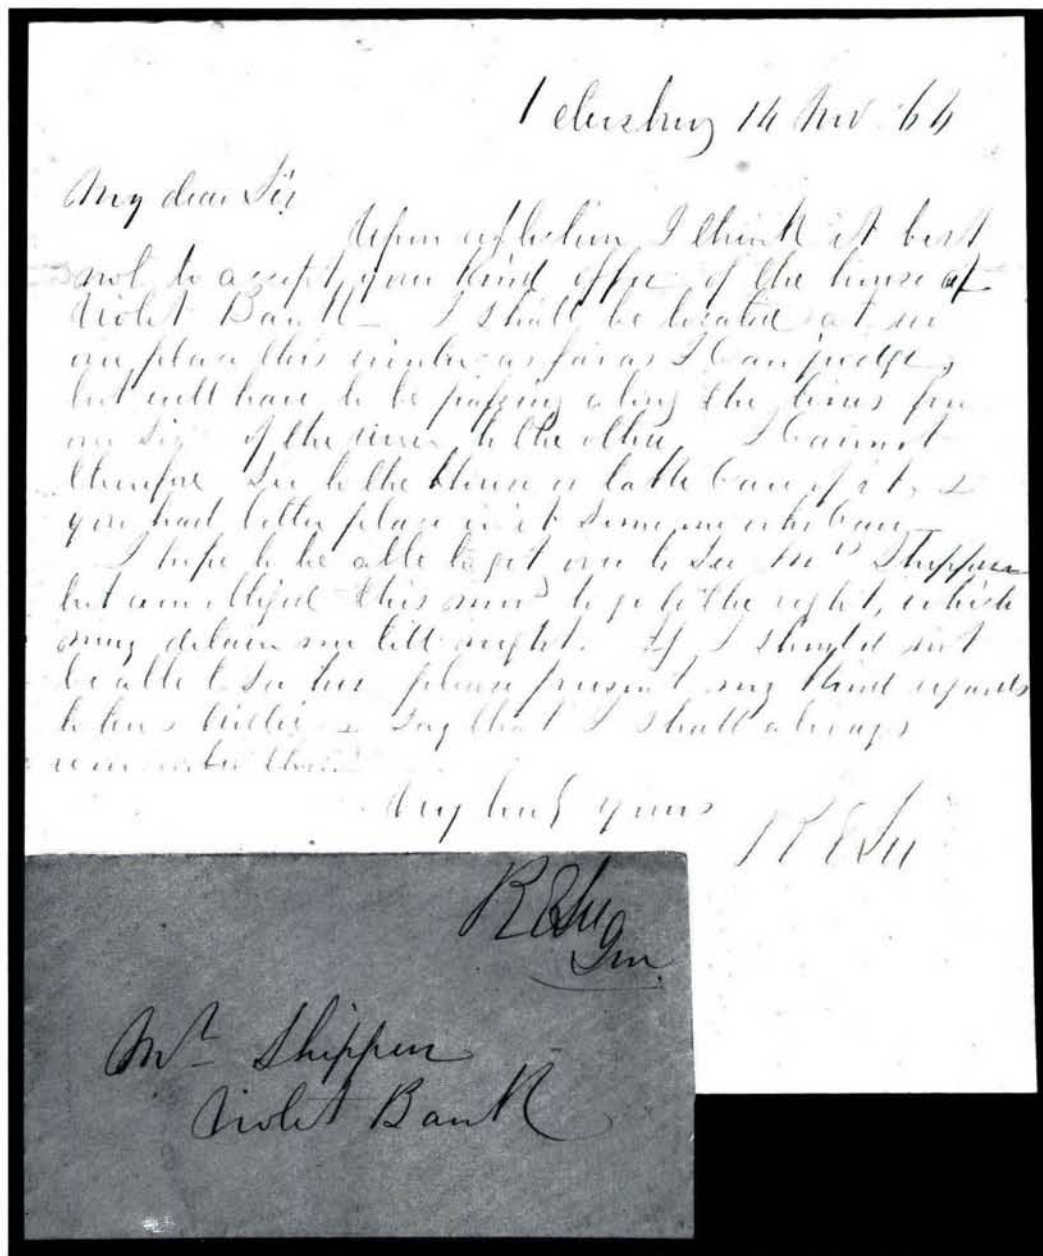 Petersburg 14 Nov 64
My dear Sir
Upon reflection I think it best
not to accept your kind offer of the house at
Violet Bank – I shall be located at no
one place this winter as far as I can judge,
but will have to be passing along the lines from
one side of the river to the other. I cannot
therefore see to the house or take care of it, &
you had better place in it some one who can –
I hope to be able to get over to see Mrs Shippen
but am obliged this morng to go to the right, which
may detain me till night. If I should not
be able to see her please present my kind regards
to her & say that I shall always
remember them
Very truly yours
R E Lee
R E Lee
Gen
Mr Shippen
Violet Bank